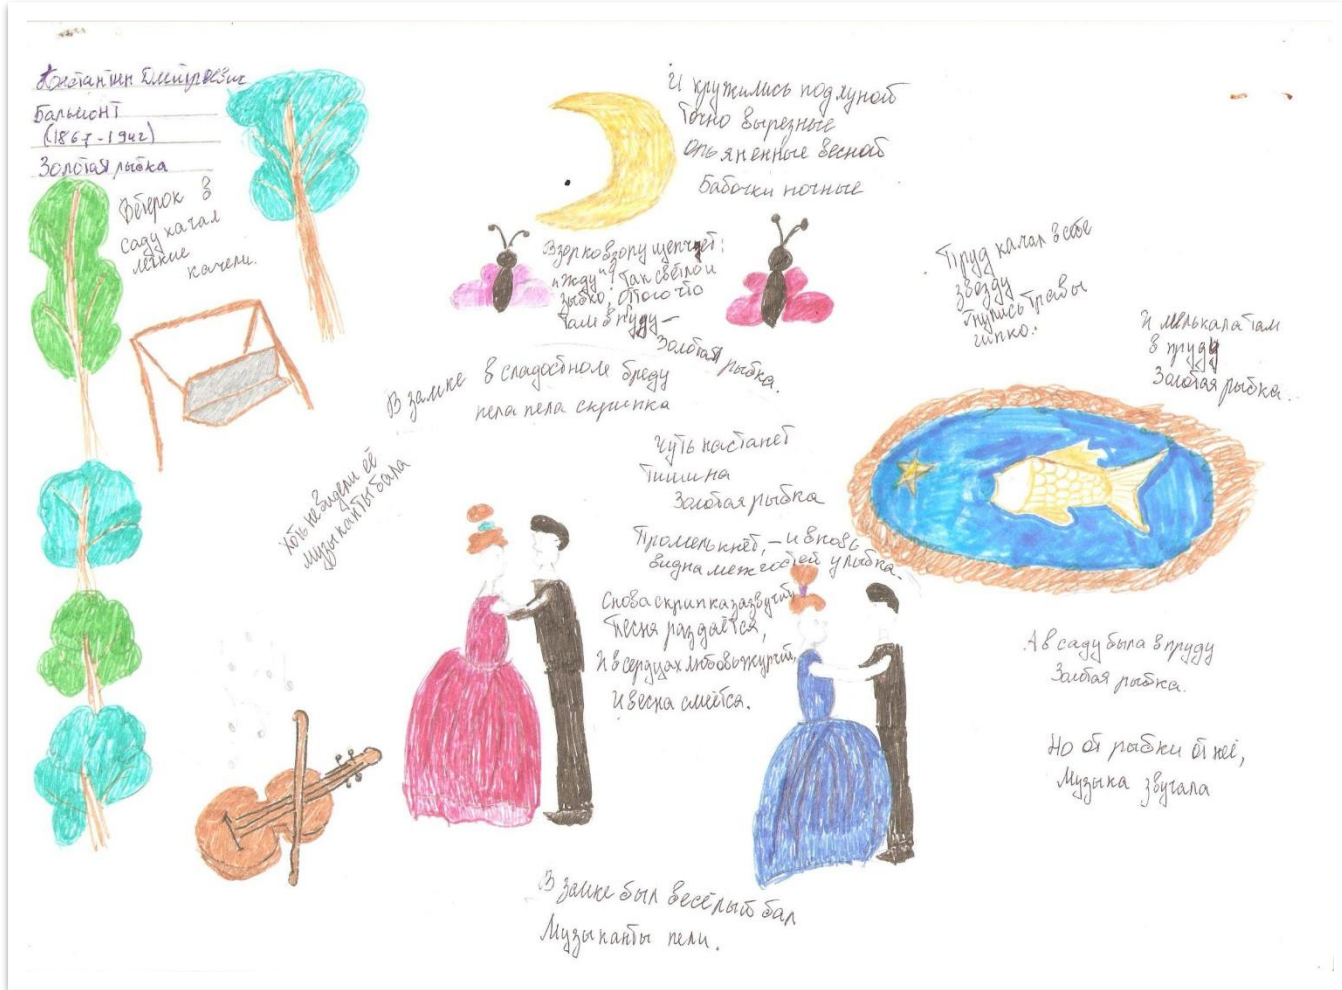 Константин Дмитриевич
Бальмонт
(1867-1942)
Золотая рыбка
Ветерок в
саду качал
лёгкие
качели.
И кружились под луной
Точно вырезные
Опьяненные весной
Бабочки ночные
Взор ко взору шепчет:
"Жду"! Так светло и
зыбко, Оттого что
там в пруду –
Золотая рыбка.
Пруд качал в себе
звезду
Гнулись травы
гипко.
И мелькала там
в пруду
Золотая рыбка..
В замке в сладостном бреду
пела пела скрипка
Хоть не видели её
музыканты бала
Чуть настанет
Тишина
Золотая рыбка
Промелькнёт, – и вновь
видна меж гостей улыбка.
Снова скрипка зазвучит,
Песня раздаётся,
И в сердцах любовь журчит,
И весна смеётся.
А в саду была в пруду
Золотая рыбка.
Но от рыбки от неё,
Музыка звучала
В замке был весёлый бал
Музыканты пели.